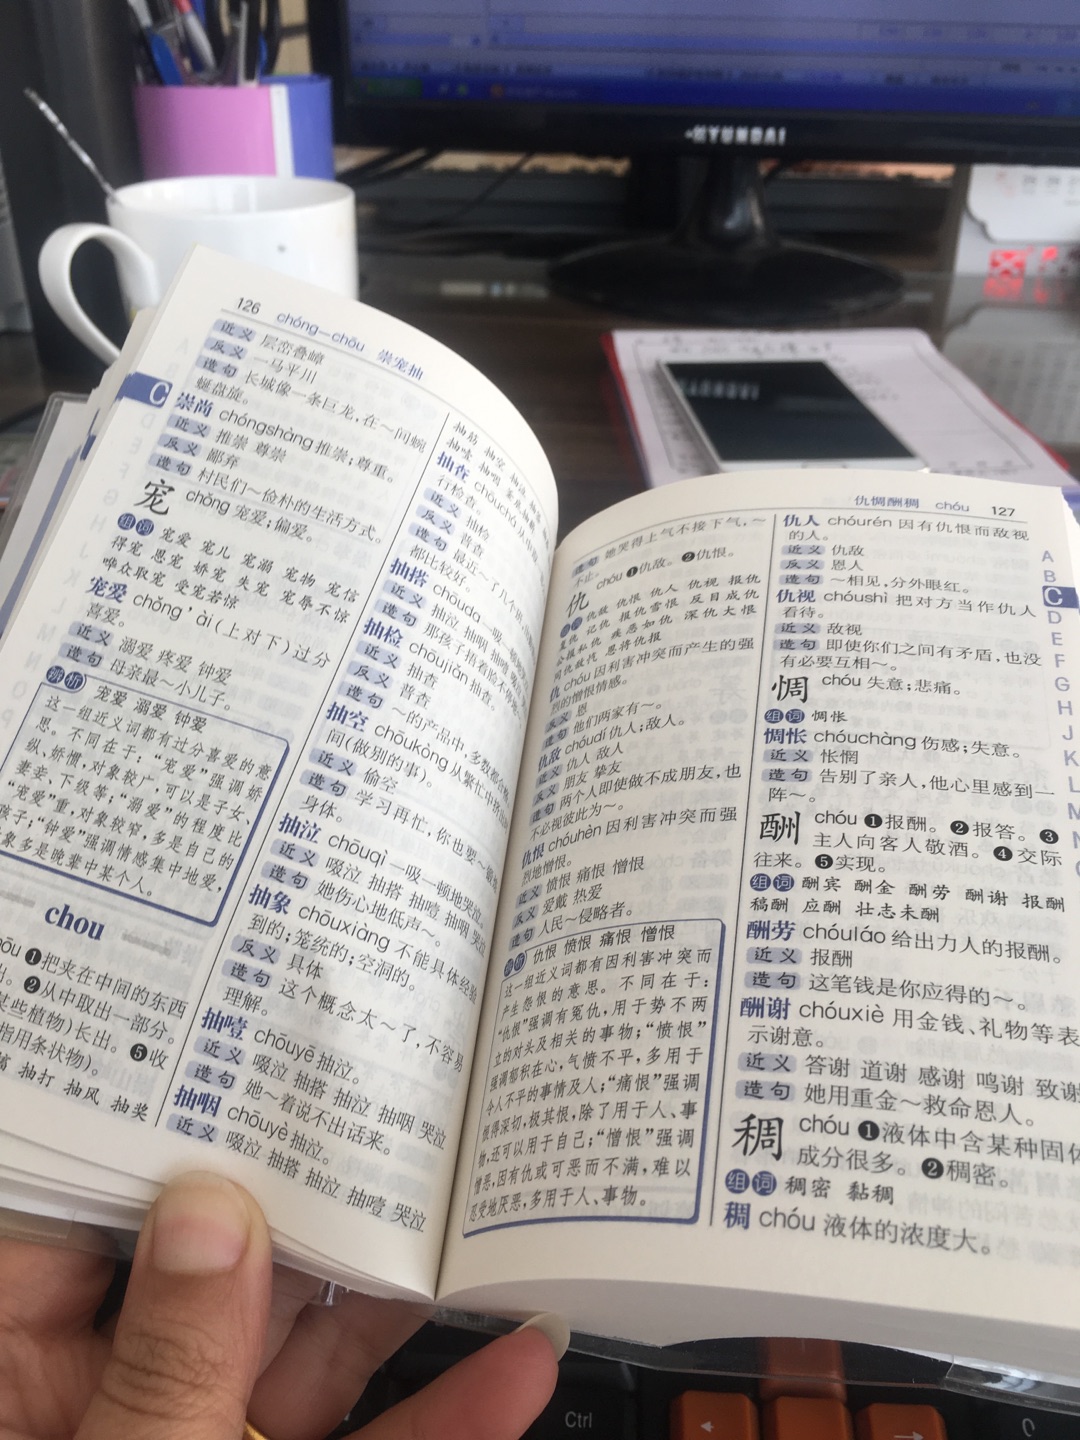 HYUNDAI
126 chóng—chōu 崇宠抽
近义 层峦叠嶂
反义 一马平川
造句 长城像一条巨龙,在~间蜿
蜒盘旋。
崇尚 chóngshàng 推崇;尊重。
近义 推崇 尊崇
反义 鄙弃
造句 村民们~俭朴的生活方式。
宠 chǒng 宠爱;偏爱。
组词 宠爱 宠儿 宠溺 宠物 宠信
得宠 恩宠 娇宠 失宠 宠辱不惊
哗众取宠 受宠若惊
宠爱 chǒng'ài (上对下)过分
喜爱。
近义 溺爱 疼爱 钟爱
造句 母亲最~小儿子。
辨析 宠爱 溺爱 钟爱
这一组近义词都有过分喜爱的意
思。不同在于:“宠爱”强调娇
纵、娇惯,对象较广,可以是子女、
妻妾、下级等;“溺爱”的程度比
“宠爱”重,对象较窄,多是自己的
孩子;“钟爱”强调情感集中地爱,
象多是晚辈中某个人。
chou
ōu ❶把夹在中间的东西
出。❷从中取出一部分。
某些植物)长出。❺收
指用条状物)。
抽打 抽风 抽奖
抽筋 抽空
抽噎 抽咽
抽查 chōuchá
行检查。
近义 抽检
反义 普查
造句 最近~了几个班
都比较好。
抽搭 chōuda 一吸
近义 抽泣 抽咽 抽噎
造句 那孩子捂着脸不停
抽检 chōujiǎn 抽查。
近义 抽查
反义 普查
造句 ~的产品中,多数都合格
抽空 chōukòng 从繁忙中挤出时
间(做别的事)。
近义 偷空
造句 学习再忙,你也要~锻炼
身体。
抽泣 chōuqì 一吸一顿地哭泣。
近义 啜泣 抽搭 抽噎 抽咽 哭泣
造句 她伤心地低声~。
抽象 chōuxiàng 不能具体经验
到的;笼统的;空洞的。
反义 具体
造句 这个概念太~了,不容易
理解。
抽噎 chōuyē 抽泣。
近义 啜泣 抽搭 抽泣 抽咽 哭泣
造句 她~着说不出话来。
抽咽 chōuyè 抽泣。
近义 啜泣 抽搭 抽泣 抽噎 哭泣
仇惆酬稠 chóu 127
造句 她哭得上气不接下气,~
不止。
仇 chóu ❶仇敌。❷仇恨。
组词 仇敌 仇恨 仇人 仇视 报仇
复仇 记仇 报仇雪恨 反目成仇
公报私仇 疾恶如仇 深仇大恨
同仇敌忾 恩将仇报
仇 chóu 因利害冲突而产生的强
烈的憎恨情感。
反义 恩
造句 他们两家有~。
仇敌 chóudí 仇人;敌人。
近义 仇人 敌人
反义 朋友 挚友
造句 两个人即使做不成朋友,也
不必视彼此为~。
仇恨 chóuhèn 因利害冲突而强
烈地憎恨。
近义 愤恨 痛恨 憎恨
反义 爱戴 热爱
造句 人民~侵略者。
辨析 仇恨 愤恨 痛恨 憎恨
这一组近义词都有因利害冲突而
产生怨恨的意思。不同在于:
“仇恨”强调有冤仇,用于势不两
立的对头及相关的事物;“愤恨”
强调郁积在心,气愤不平,多用于
令人不平的事情及人;“痛恨”强调
恨得深切,极其恨,除了用于人、事
物,还可以用于自己;“憎恨”强调
憎恶,因有仇或可恶而不满,难以
忍受地厌恶,多用于人、事物。
仇人 chóurén 因有仇恨而敌视
的人。
近义 仇敌
反义 恩人
造句 ~相见,分外眼红。
仇视 chóushì 把对方当作仇人
看待。
近义 敌视
造句 即使你们之间有矛盾,也没
有必要互相~。
惆 chóu 失意;悲痛。
组词 惆怅
惆怅 chóuchàng 伤感;失意。
近义 怅惘
造句 告别了亲人,他心里感到一
阵~。
酬 chóu ❶报酬。❷报答。❸
主人向客人敬酒。❹交际
往来。❺实现。
组词 酬宾 酬金 酬劳 酬谢 报酬
稿酬 应酬 壮志未酬
酬劳 chóuláo 给出力人的报酬。
近义 报酬
造句 这笔钱是你应得的~。
酬谢 chóuxiè 用金钱、礼物等表
示谢意。
近义 答谢 道谢 感谢 鸣谢 致谢
造句 她用重金~救命恩人。
稠 chóu ❶液体中含某种固体
成分很多。❷稠密。
组词 稠密 黏稠
稠 chóu 液体的浓度大。
A
B
C
D
E
F
G
H
J
K
L
M
Ctrl